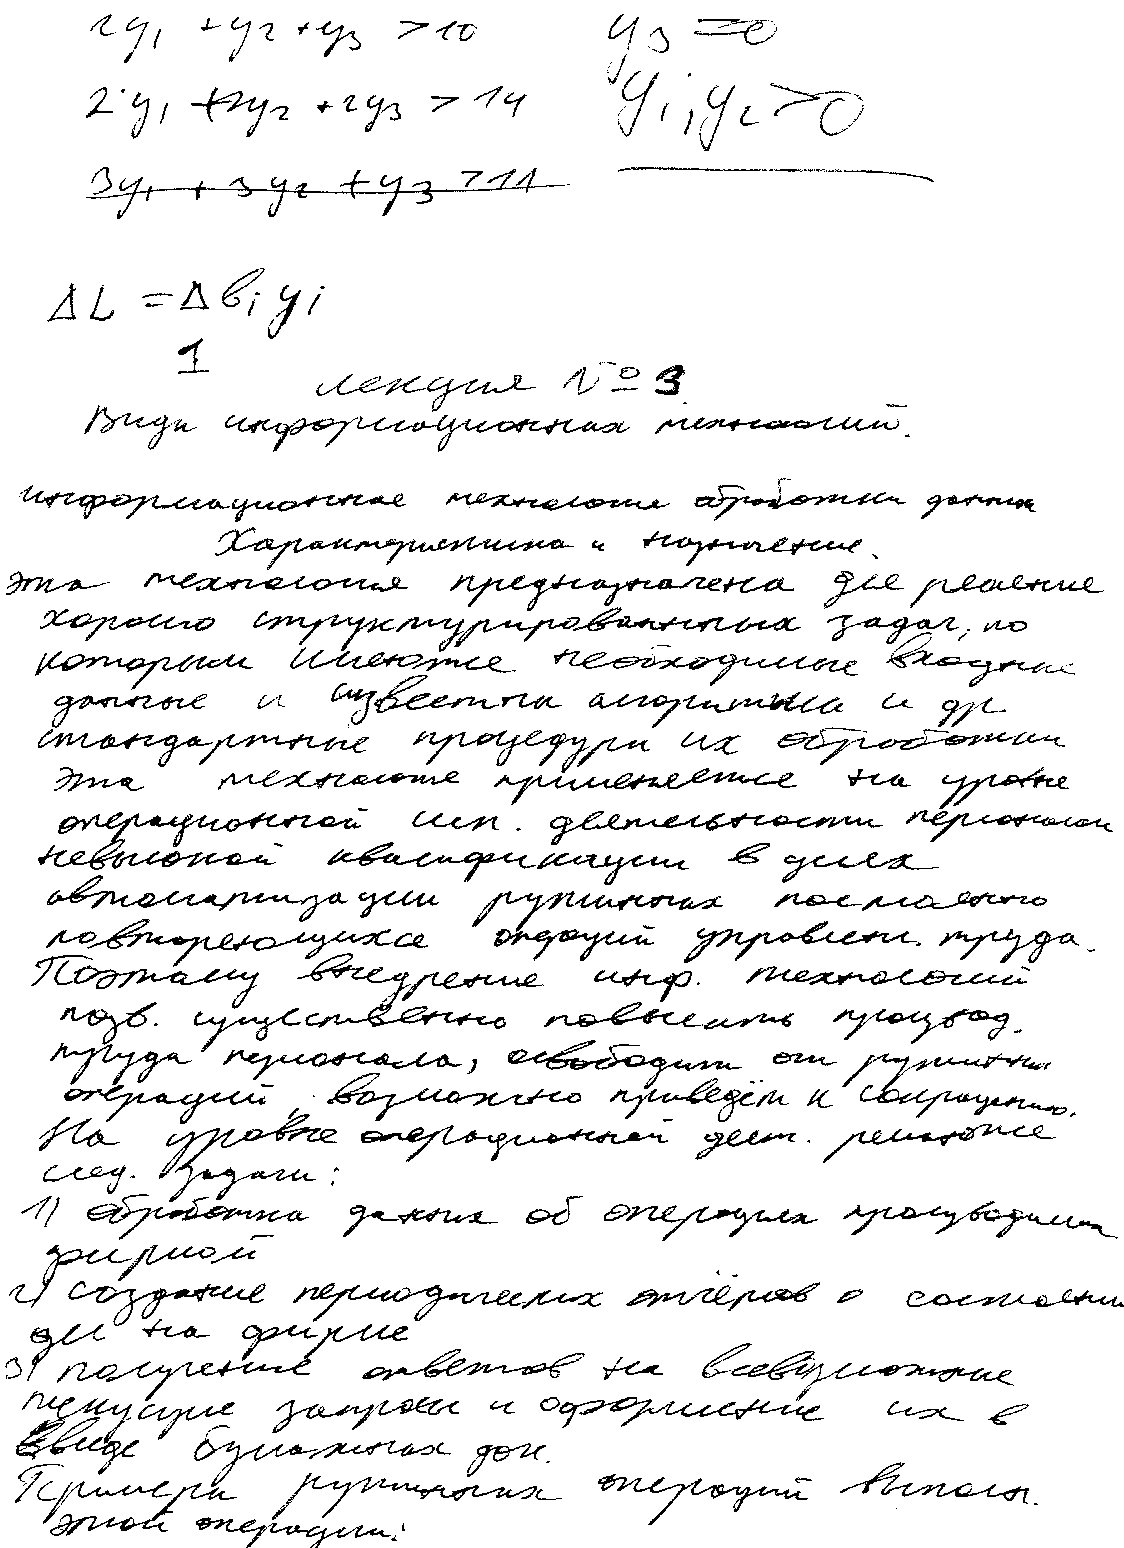 2y₁ + y₂ + y₃ > 10 y₃ = 0
2y₁ + 2y₂ + 2y₃ > 14 y₁, y₂ > 0
3y₁ + 3y₂ + y₃ > 11
ΔL = Δbᵢyᵢ
1
лекция № 3
Виды информационных технологий.
информационные технологии обработки данных
Характеристика и назначение.
Эта технология предназначена для решение
хорошо структурированных задач, по
которым имеются необходимые входные
данные и известны алгоритмы и др
стандартные процедуры их обработки
Эта технология применяется на уровне
операционной исп. деятельности персонала
невысокой квалификации в целях
автоматизации рутинных постоянно
повторяющихся операций управлен. труда.
Поэтому внедрение инф. технологий
позв. существенно повысить производ.
труда персонала, освободит от рутинных
операций, возможно приведёт к сокращению.
На уровне операционной деят. решаются
след. задачи:
1) обработка данных об операциях производимых
фирмой
2) создание периодических отчётов о состоянии
дел на фирме
3) получение ответов на всевозможные
текущие запросы и оформление их в
виде бумажных док.
Примеры рутинных операций выполн.
этой операции: